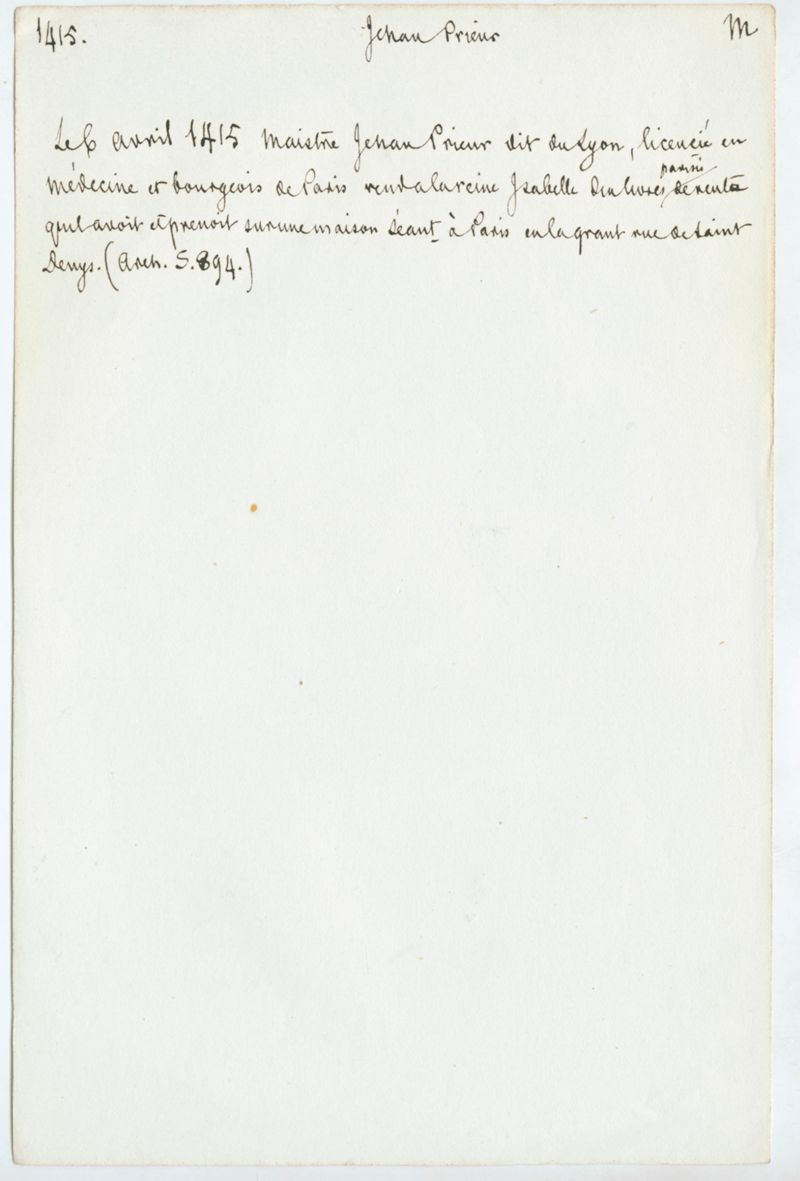 1415. Jehan Prieur M
Le 6 avril 1415 Maistre Jehan Prieur dit du Lyon, licencié en
médecine et bourgeois de Paris vend a la reine Isabelle livres parisis de rente
qu'il avoit et prenoit sur une maison séant à Paris en la grant rue de Saint
Denys. (Arch. S. 894.)